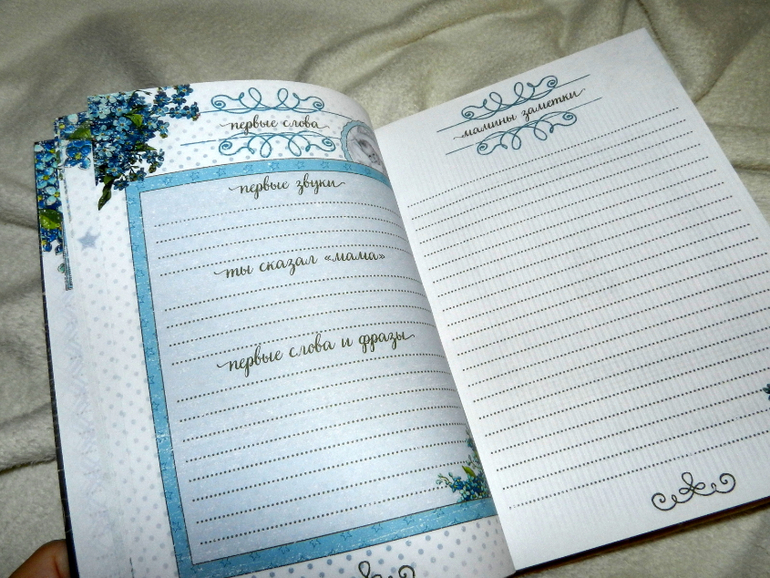 первые слова
первые звуки
ты сказал «мама»
первые слова и фразы
мамины заметки